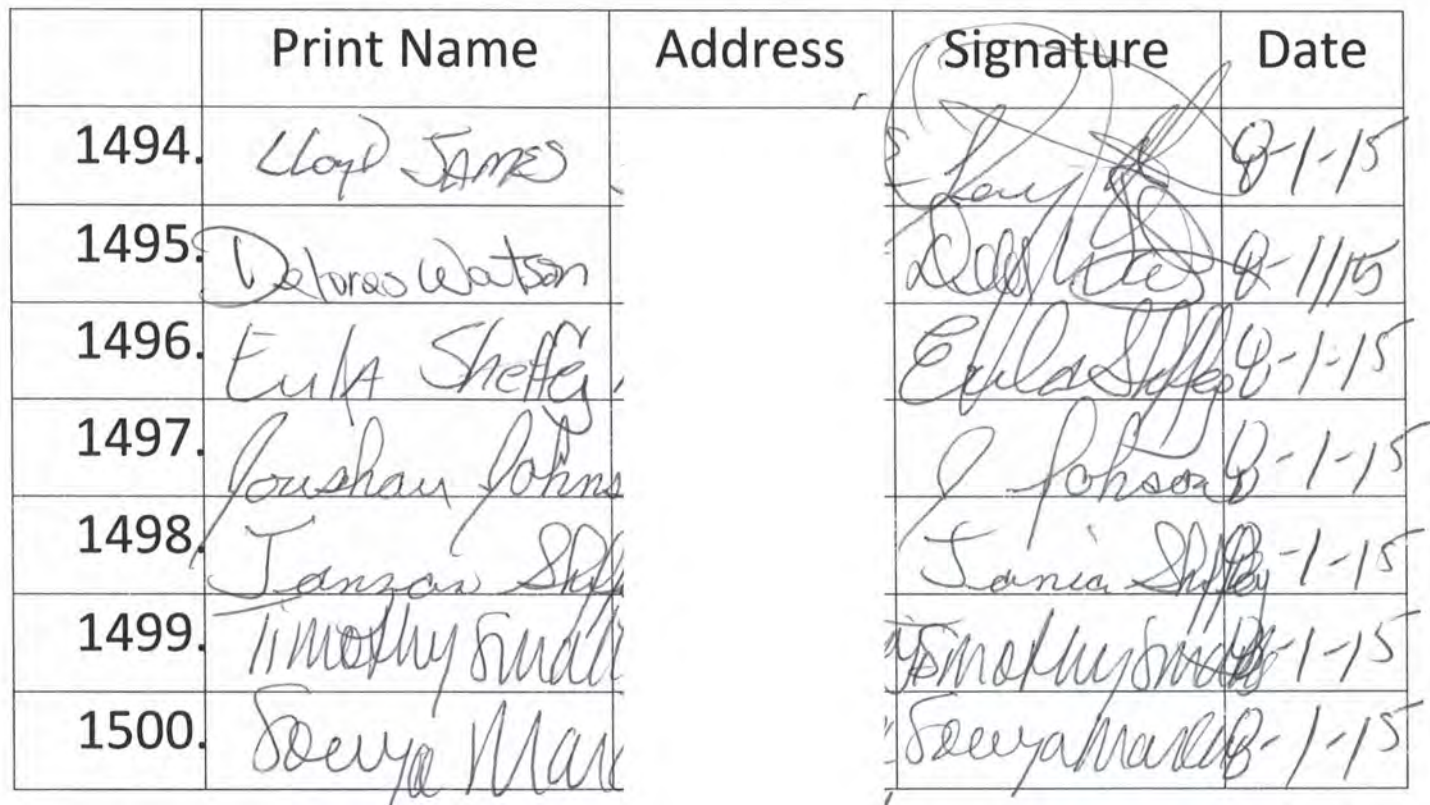 Print Name Address Signature Date
1494. Lloyd JAMES 8-1-15
1495. Delores Watson 8-1-15
1496. Eula Sheffey Eula Sheffey 8-1-15
1497. Johns J Johson 8-1-15
1498. Sheff Tania Sheffey 8-1-15
1499. Timothy Small Timothy Small 8-1-15
1500. Sonya Mar Sonya 8-1-15